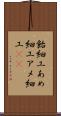 飴細工あめ
細工アメ細
工